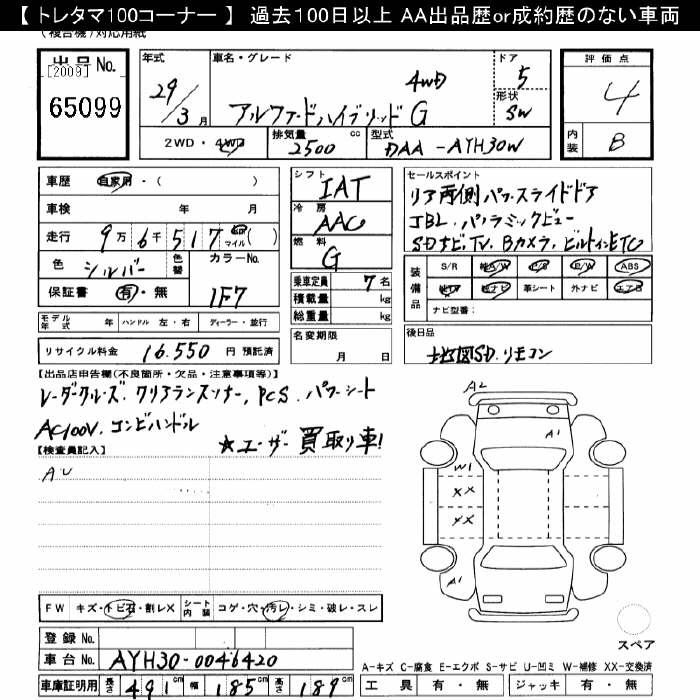 【 トレタマ100コーナー 】 過去100日以上 AA出品歴or成約歴のない車両
(複合機)対応用紙
出品No.
[2009]
65099
年式
29/3月
車名・グレード
4WD
アルファードハイブリッド G
ドア
5
形状
SW
評価点
4
内装
B
2WD・4WD
排気量
2500 cc
型式
DAA-AYH30W
車歴 自家用・( )
車検 年 月
走行 9万6千517 km マイル( )
色 シルバー
色替
カラーNo.
1F7
保証書 有・無
シフト
IAT
冷房
AAC
燃料
G
乗車定員 7名
積載量 kg
総重量 kg
セールスポイント
リア両側パワースライドドア
JBL、パノラミックビュー
SDナビ、TV、Bカメラ、ビルトインETC
装備品
S/R 純A/W P/S P/W ABS
純TV 純ナビ 革シート 外ナビ エアB
ナビ型番:
モデル年式 年 ハンドル 左・右 ディーラー・並行
リサイクル料金 16,550 円 預託済
名変期限
月 日
後日品
地図SD、リモコン
【出品店申告欄(不良箇所・欠品・注意事項等)】
レーダークルーズ、クリアランスソナー、PCS、パワーシート
AC100V、コンビハンドル
★ユーザー買取り車!
【検査員記入】
AU
A2
A1
W1
XX
XX
A1
FW キズ・トビ石・割レX
シート内装 コゲ・穴・汚レ・シミ・破レ・スレ
登録No.
車台No. AYH30-0046420
スペア
A-キズ C-腐食 E-エクボ S-サビ U-凹ミ W-補修 XX-交換済
車庫証明用 長さ 491cm 幅 185cm 高さ 189cm
工具 有・無 ジャッキ 有・無